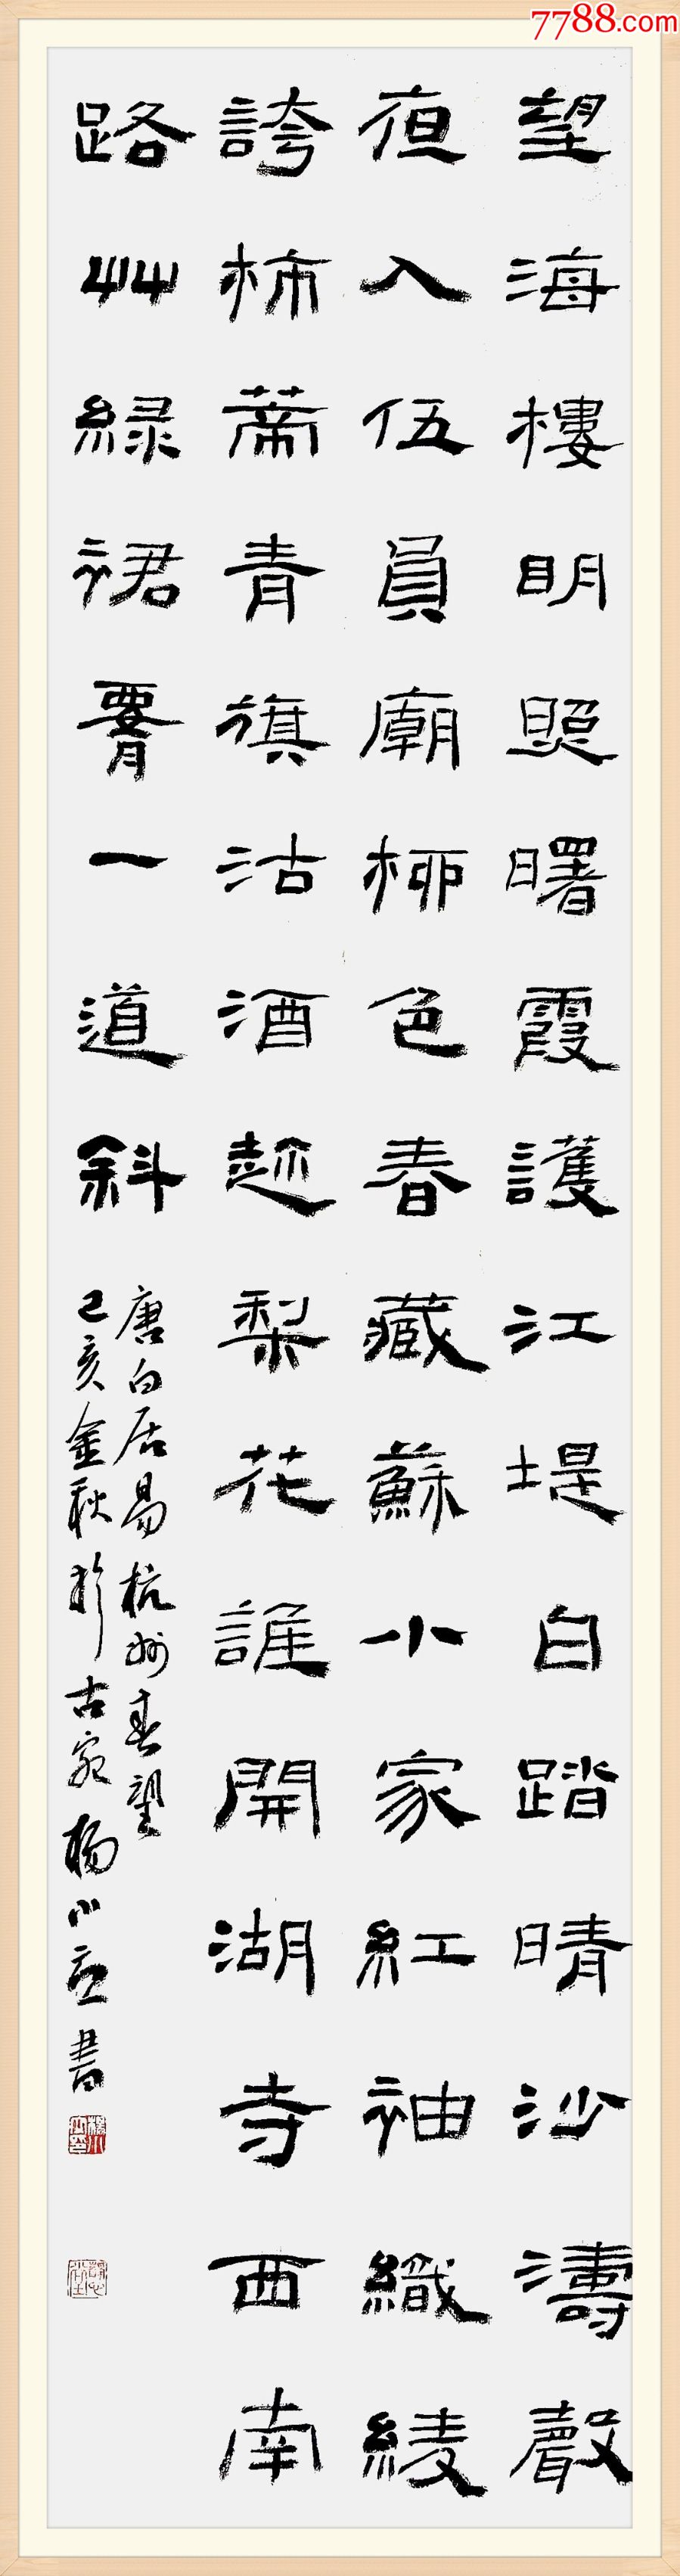 7788.com
望海樓明照曙霞護江堤白踏晴沙濤聲
夜入伍員廟柳色春藏蘇小家紅袖織綾
誇柿蒂青旗沽酒趁梨花誰開湖寺西南
路艸綠裙腰一道斜
唐白居易杭州春望
己亥金秋於古宛楊小立書